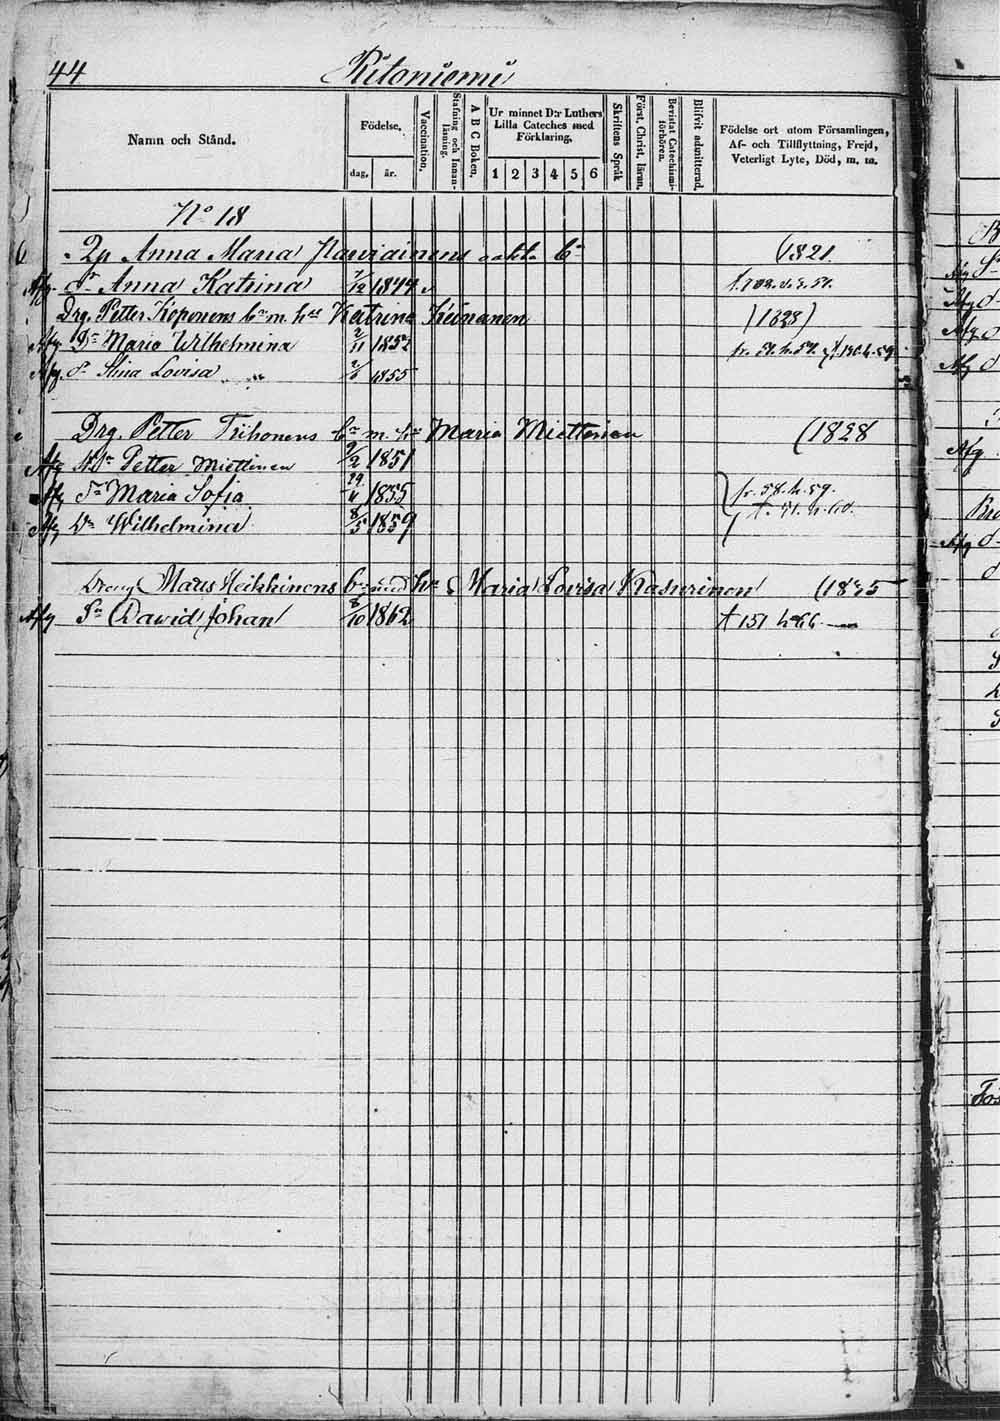 44 Ritoniemi
Namn och Stånd.
Födelse,
dag, år.
Vaccination.
Stafning och Innanläsning.
A B C Boken.
Ur minnet D:r Luthers Lilla Cateches med Förklaring,
1 2 3 4 5 6
Skriftens Språk
Först. Christ. läran.
Bevistat Catechismiförhören.
Blifvit admitterad.
Födelse ort utom Församlingen,
Af- och Tillflyttning, Frejd,
Veterligt Lyte, Död, m. m.
No 18
Anna Maria bn (1821.
Afg. Dr Anna Katrina 7/12 1844
Drg. Petter Koponens bn m. hu Katrina Keinänen (1828)
Afg Dr Maria Wilhelmina 2/11 1852 fr. 58. h. 59.
Afg dr Stina Lovisa 1855
Drg. Petter Tiihonens bn m. hu Maria Miettinen (1828
Afg Petter Miettinen 9/2 1851
Afg Dr Maria Sofia 29/11 1855 fr. 58. h. 59.
Afg Dr Wilhelmina 8/5 1859
Dreng Mats Heikkinens bn med hu Maria Lovisa Kasurinen (1835
Afg Sn Dawid Johan 8/10 1862 † 151 h 66.